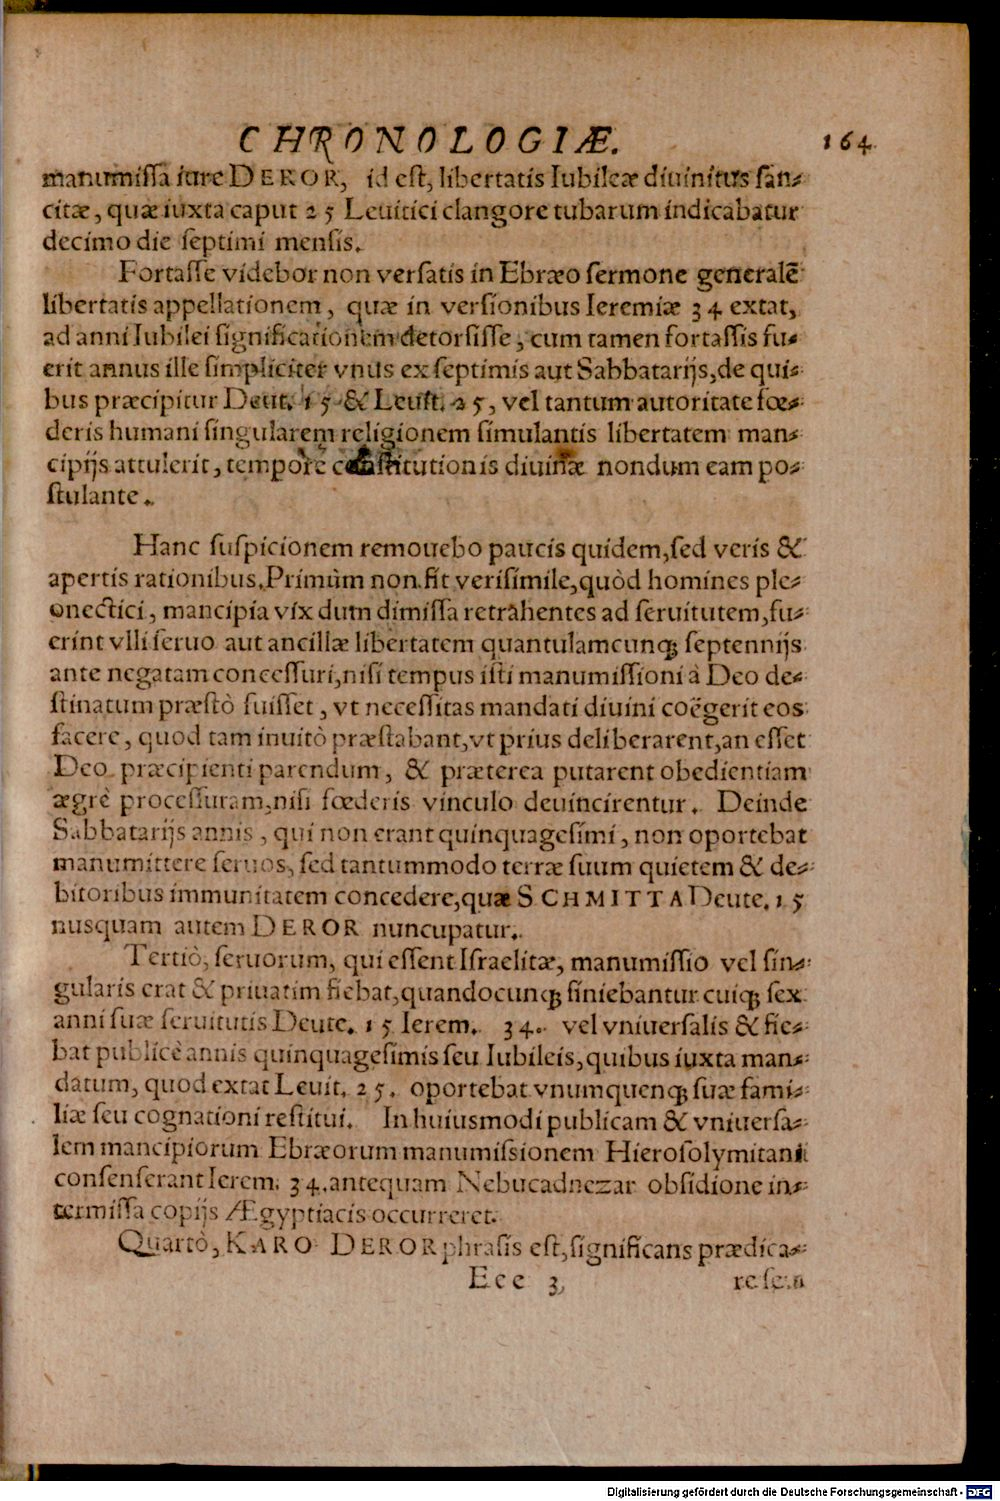 CHRONOLOGIÆ. 164
manumiſſa iure DEROR, id eſt, libertatis Iubileæ diuinitus ſan-
citæ, quæ iuxta caput 25 Leuitici clangore tubarum indicabatur
decimo die ſeptimi menſis.
Fortaſſe videbor non verſatis in Ebræo ſermone generalẽ
libertatis appellationem, quæ in verſionibus Ieremiæ 34 extat,
ad anni Iubilei ſignificationem detorſiſſe, cum tamen fortaſſis fu-
erit annus ille ſimpliciter vnus ex ſeptimis aut Sabbatarijs, de qui-
bus præcipitur Deut. 15 & Leuit. 25, vel tantum autoritate fœ-
deris humani ſingularem religionem ſimulantis libertatem man-
cipijs attulerit, tempore conſtitutionis diuinæ nondum eam po-
ſtulante.
Hanc ſuſpicionem remouebo paucis quidem, ſed veris &
apertis rationibus. Primùm non fit veriſimile, quòd homines ple-
onectici, mancipia vix dum dimiſſa retrahentes ad ſeruitutem, fu-
erint vlli ſeruo aut ancillæ libertatem quantulamcunq; ſeptennijs
ante negatam conceſſuri, niſi tempus iſti manumiſſioni à Deo de-
ſtinatum præſtò fuiſſet, vt neceſſitas mandati diuini coëgerit eos
facere, quod tam inuitò præſtabant, vt prius deliberarent, an eſſet
Deo præcipienti parendum, & præterea putarent obedientiam
ægrè proceſſuram, niſi fœderis vinculo deuincirentur. Deinde
Sabbatarijs annis, qui non erant quinquageſimi, non oportebat
manumittere ſeruos, ſed tantummodo terræ ſuum quietem & de-
bitoribus immunitatem concedere, quæ SCHMITTA Deute. 15
nusquam autem DEROR nuncupatur.
Tertiò, ſeruorum, qui eſſent Iſraelitæ, manumiſſio vel ſin-
gularis erat & priuatim fiebat, quandocunq; finiebantur cuiq; ſex
anni ſuæ ſeruitutis Deute. 15 Ierem. 34. vel vniuerſalis & fie-
bat publicè annis quinquageſimis ſeu Iubileis, quibus iuxta man-
datum, quod extat Leuit. 25. oportebat vnumquenq; ſuæ fami-
liæ ſeu cognationi reſtitui. In huiusmodi publicam & vniuerſa-
lem mancipiorum Ebræorum manumiſsionem Hieroſolymitani
conſenſerant Ierem. 34. antequam Nebucadnezar obſidione in-
termiſſa copijs Ægyptiacis occurreret.
Quartò, KARO DEROR phraſis eſt, ſignificans prædica-
Eee 3 re ſe:u
Digitalisierung gefördert durch die Deutsche Forschungsgemeinschaft - DFG